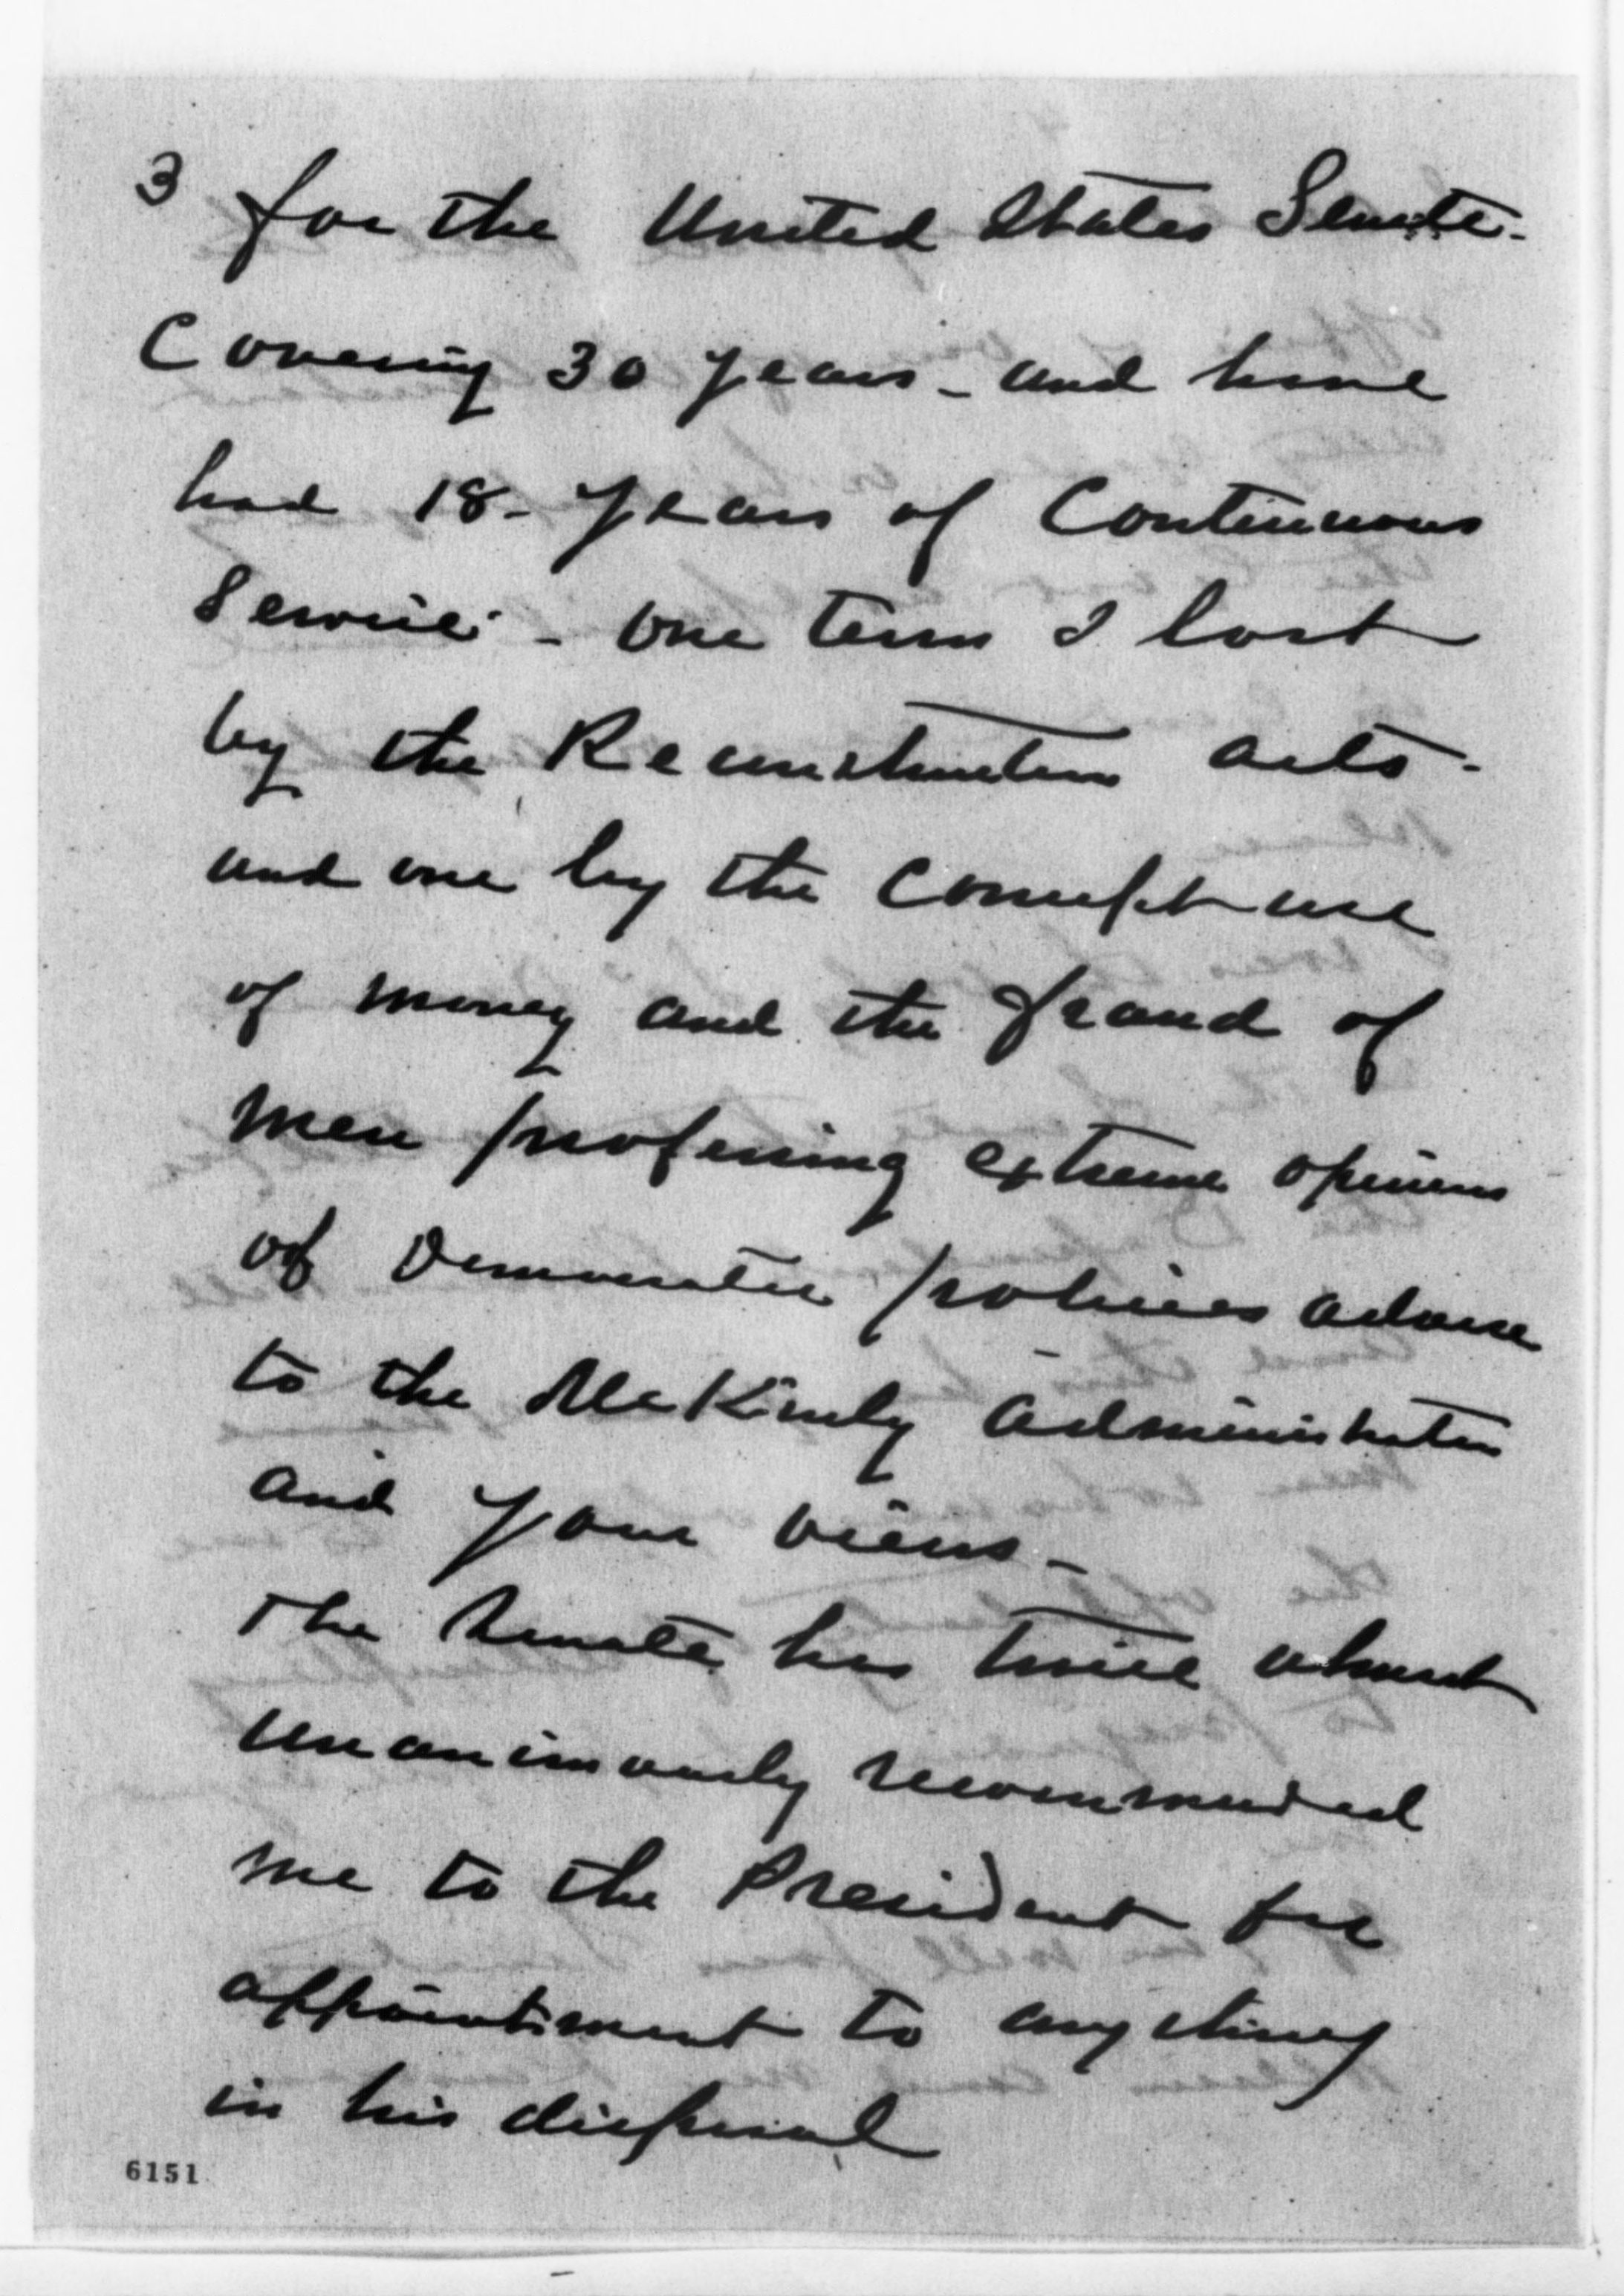 3 for the United States Senate -
Covering 30 years - and have
had 18 - years of Continuous
Service - one term I lost
by the Reconstruction acts -
and one by the Corrupt use
of money and the fraud of
men professing extreme opinions
of Democratic policies adverse
to the McKinly Administration
and your views -
The Senate has twice almost
unanimously recommended
me to the President for
appointment to anything
in his disposal
6151